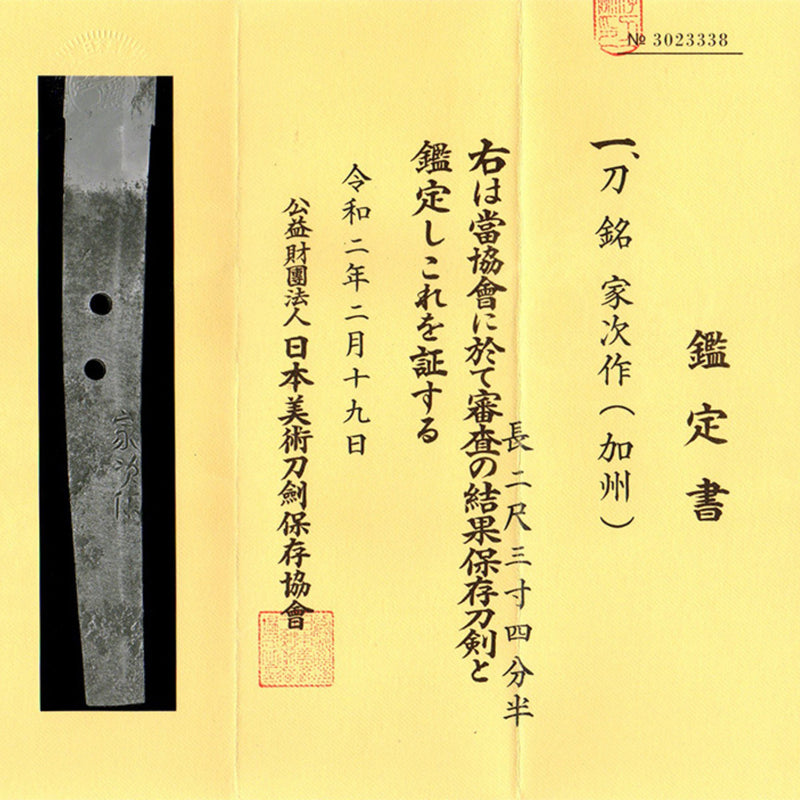 № 3023338
鑑定書
一、刀 銘 家次作（加州）
長二尺三寸四分半
右は當協會に於て審査の結果保存刀剣と
鑑定しこれを証する
令和二年二月十九日
公益財團法人 日本美術刀劍保存協會
家次作